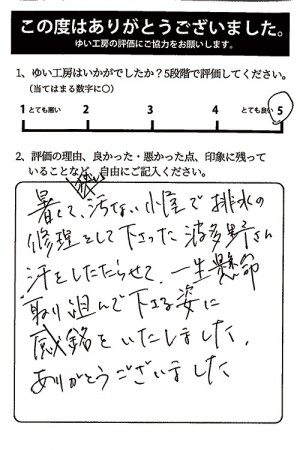 この度はありがとうございました。
ゆい工房の評価にご協力をお願いします。
1、ゆい工房はいかがでしたか?5段階で評価してください。
(当てはまる数字に○)
1 とても悪い 2 3 4 とても良い 5
2、評価の理由、良かった・悪かった点、印象に残って
いることなど、自由にご記入ください。
暑くて、汚ない小屋で排水の
修理をして下さった波多野さん
汗をしたたらせて、一生懸命
取り組んで下さる姿に
感銘をいたしました。
ありがとうございました